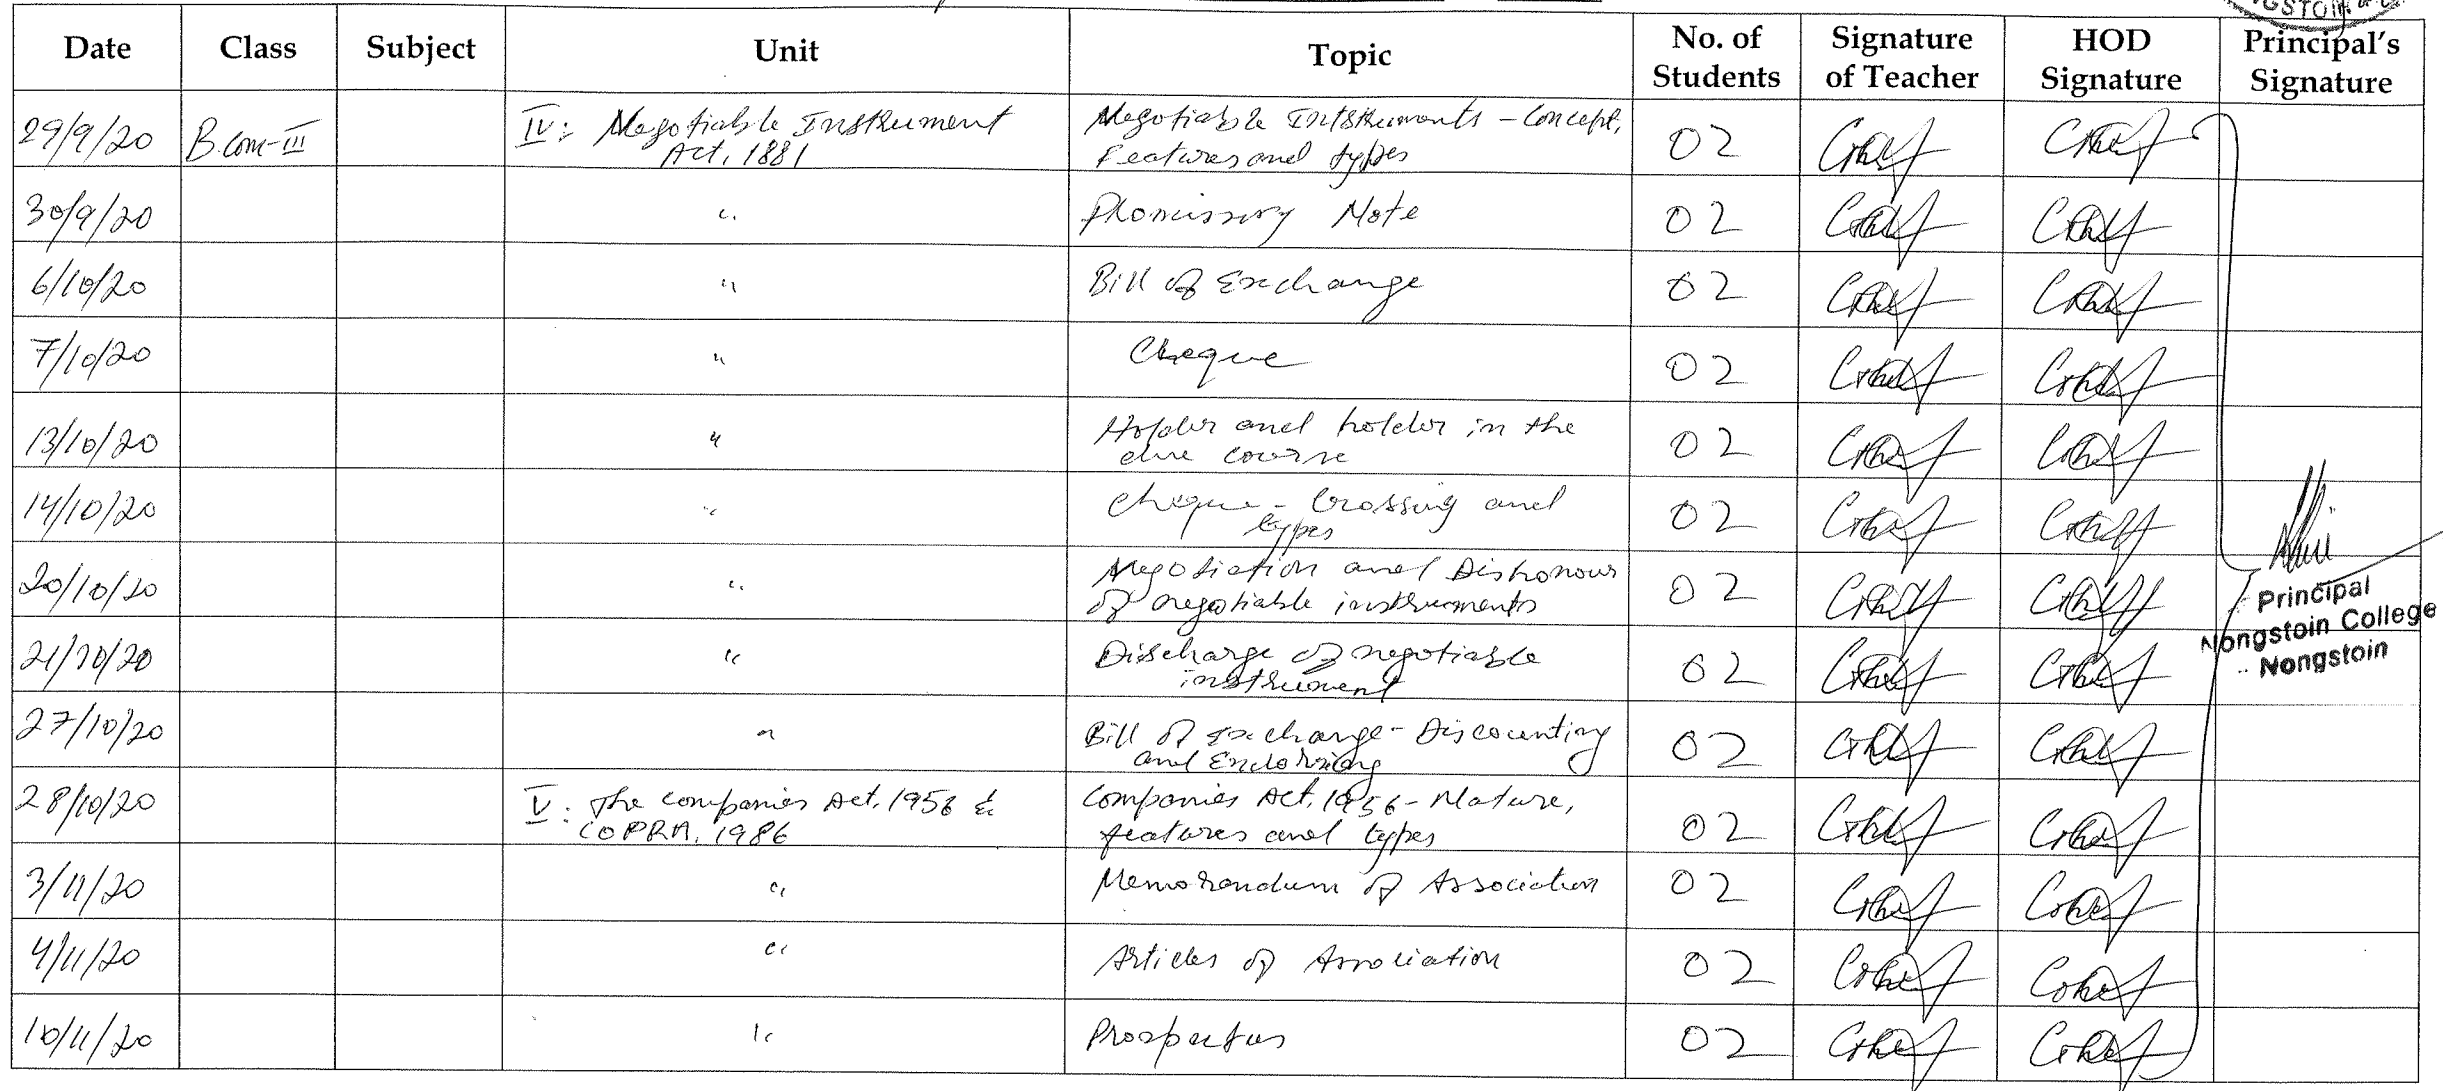 NGSTOIN
Date Class Subject Unit Topic No. of Students Signature of Teacher HOD Signature Principal's Signature
29/9/20 B.com-III IV: Negotiable Instrument Act, 1881 Negotiable Intstruments - Concept, Features and types 02
30/9/20 " Promissory Note 02
6/10/20 " Bill of Exchange 02
7/10/20 " Cheque 02
13/10/20 " Holder and holder in the due course 02
14/10/20 " Cheque - Crossing and types 02
20/10/20 " Negotiation and Dishonour of negotiable instruments 02
21/10/20 " Discharge of negotiable instrument 02
27/10/20 " Bill of exchange - Discounting and Endorsing 02
28/10/20 V: The Companies Act, 1956 & COPRA, 1986 Companies Act, 1956 - Nature, features and types 02
3/11/20 " Memorandum of Association 02
4/11/20 " Articles of Association 02
10/11/20 " Prospectus 02
Principal
Nongstoin College
Nongstoin